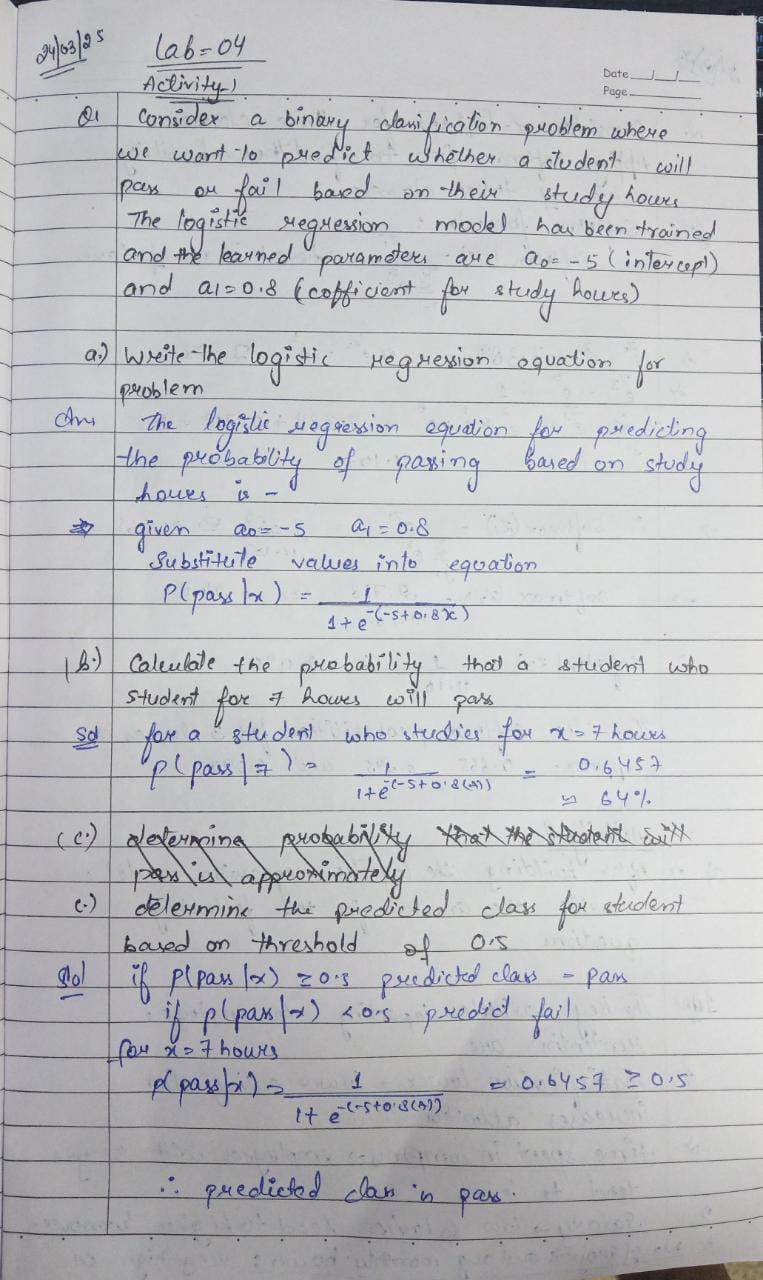 24/03/25
Lab=04
Date
Page
Activity 1
Q1 Consider a binary classification problem where
we want to predict whether a student will
pass or fail based on their study hours
The logistic regression model has been trained
and the learned parameters are a0=-5 (intercept)
and a1=0.8 (cofficient for study hours)
a.) Write the logistic regression equation for
problem
Ans The logistic regression equation for predicting
the probability of passing based on study
hours is -
given a0=-5 a1=0.8
Substitute values into equation
P(pass|x) = 1/(1+e^-(-5+0.8x))
b.) Calculate the probability that a student who
student for 7 hours will pass
Sol for a student who studies for x=7 hours
P(pass|7) = 1/(1+e^-(-5+0.8(7))) = 0.6457
≈ 64%
(c.) determine probability that the student will
pass is approximately
c.) determine the predicted class for student
based on threshold of 0.5
Sol if P(pass|x) ≥0.5 predicted class = pass
if p(pass|x) <0.5 predict fail
for x=7 hours
p(pass|x) = 1/(1+e^-(-5+0.8(7))) = 0.6457 ≥ 0.5
∴ predicted class is pass.